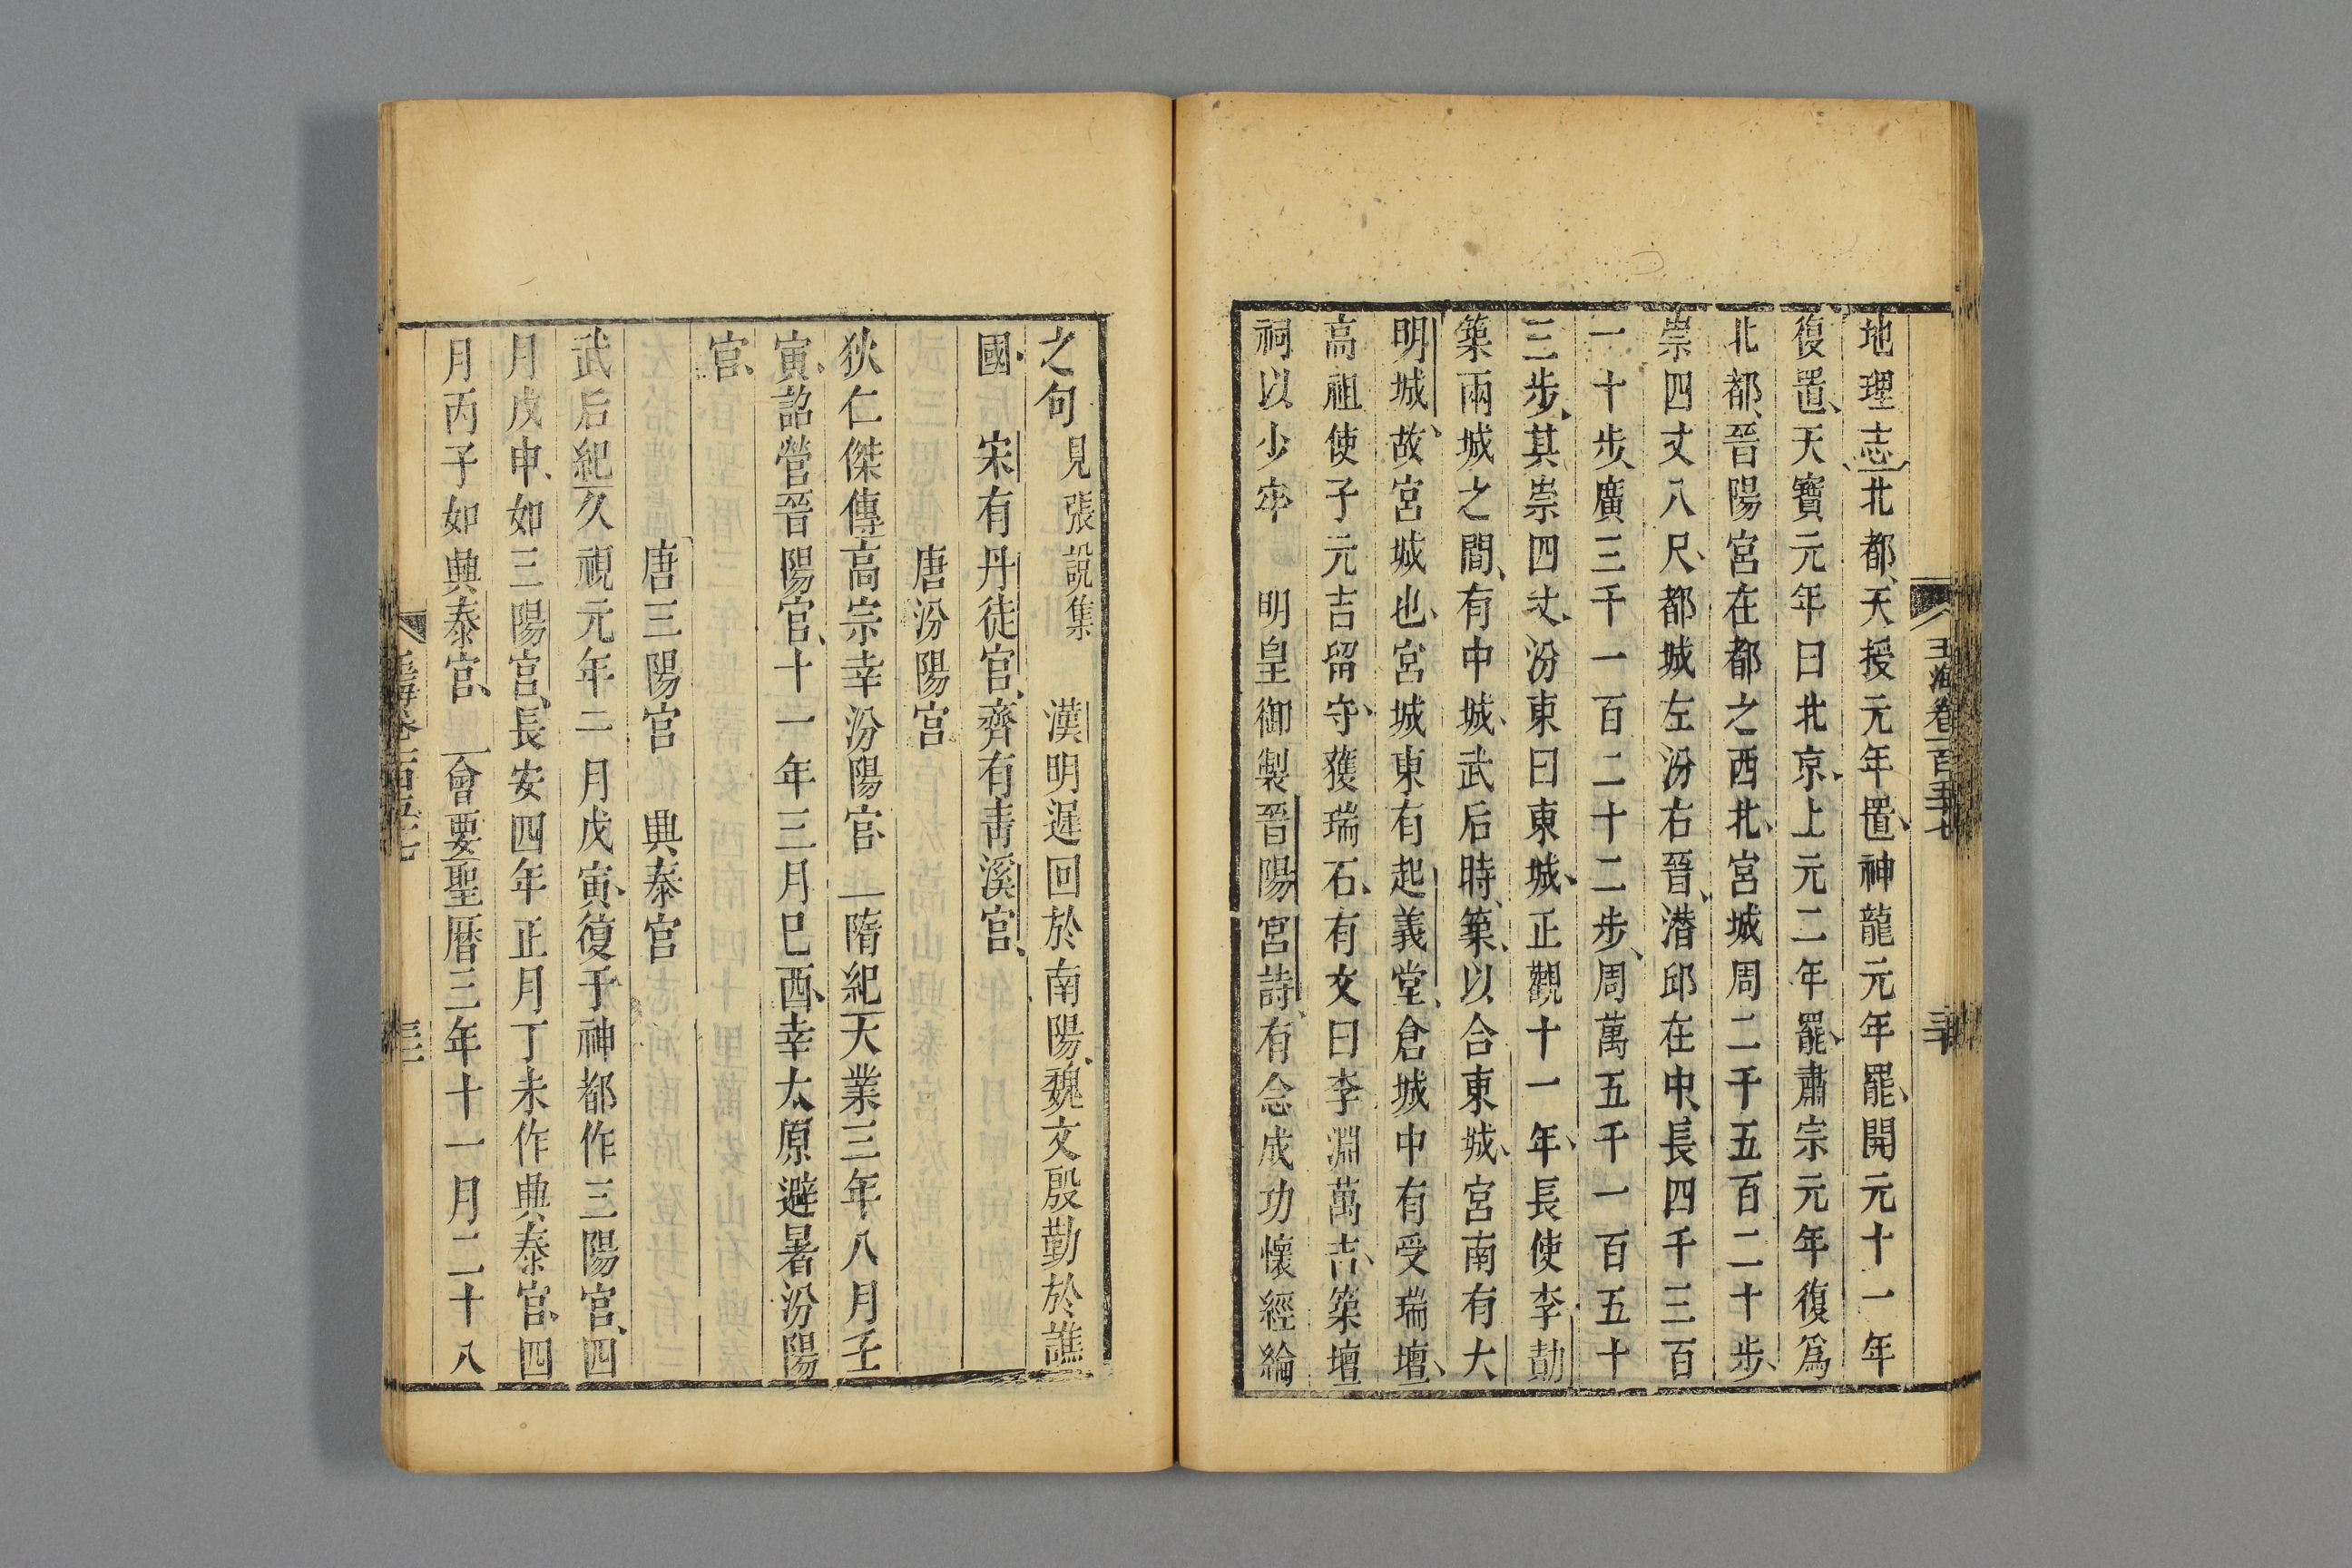 地理志北都天授元年置神龍元年罷開元十一年
復置天寶元年曰北京上元二年罷肅宗元年復爲
北都晉陽宮在都之西北宮城周二千五百二十步
崇四丈八尺都城左汾右晉潛邱在中長四千三百
一十步廣三千一百二十二步周萬五千一百五十
三步其崇四丈汾東曰東城正觀十一年長使李勣
築兩城之間有中城武后時築以合東城宮南有大
明城故宮城也宮城東有起義堂倉城中有受瑞壇
高祖使子元吉留守獲瑞石有文曰李淵萬吉築壇
祠以少牢 明皇御製晉陽宮詩有念成功懷經綸
之句見張說集 漢明遲回於南陽魏文殷勤於譙
國 宋有丹徒宮齊有青溪宮
唐汾陽宮
狄仁傑傳高宗幸汾陽宮 隋紀大業三年八月壬
寅詔營晉陽宮十一年三月巳酉幸太原避暑汾陽
宮
唐三陽宮 興泰宮
武后紀久視元年二月戊寅復于神都作三陽宮四
月戊申如三陽宮長安四年正月丁未作興泰宮四
月丙子如興泰宮 會要聖曆三年十一月二十八
玉海卷一百五十七